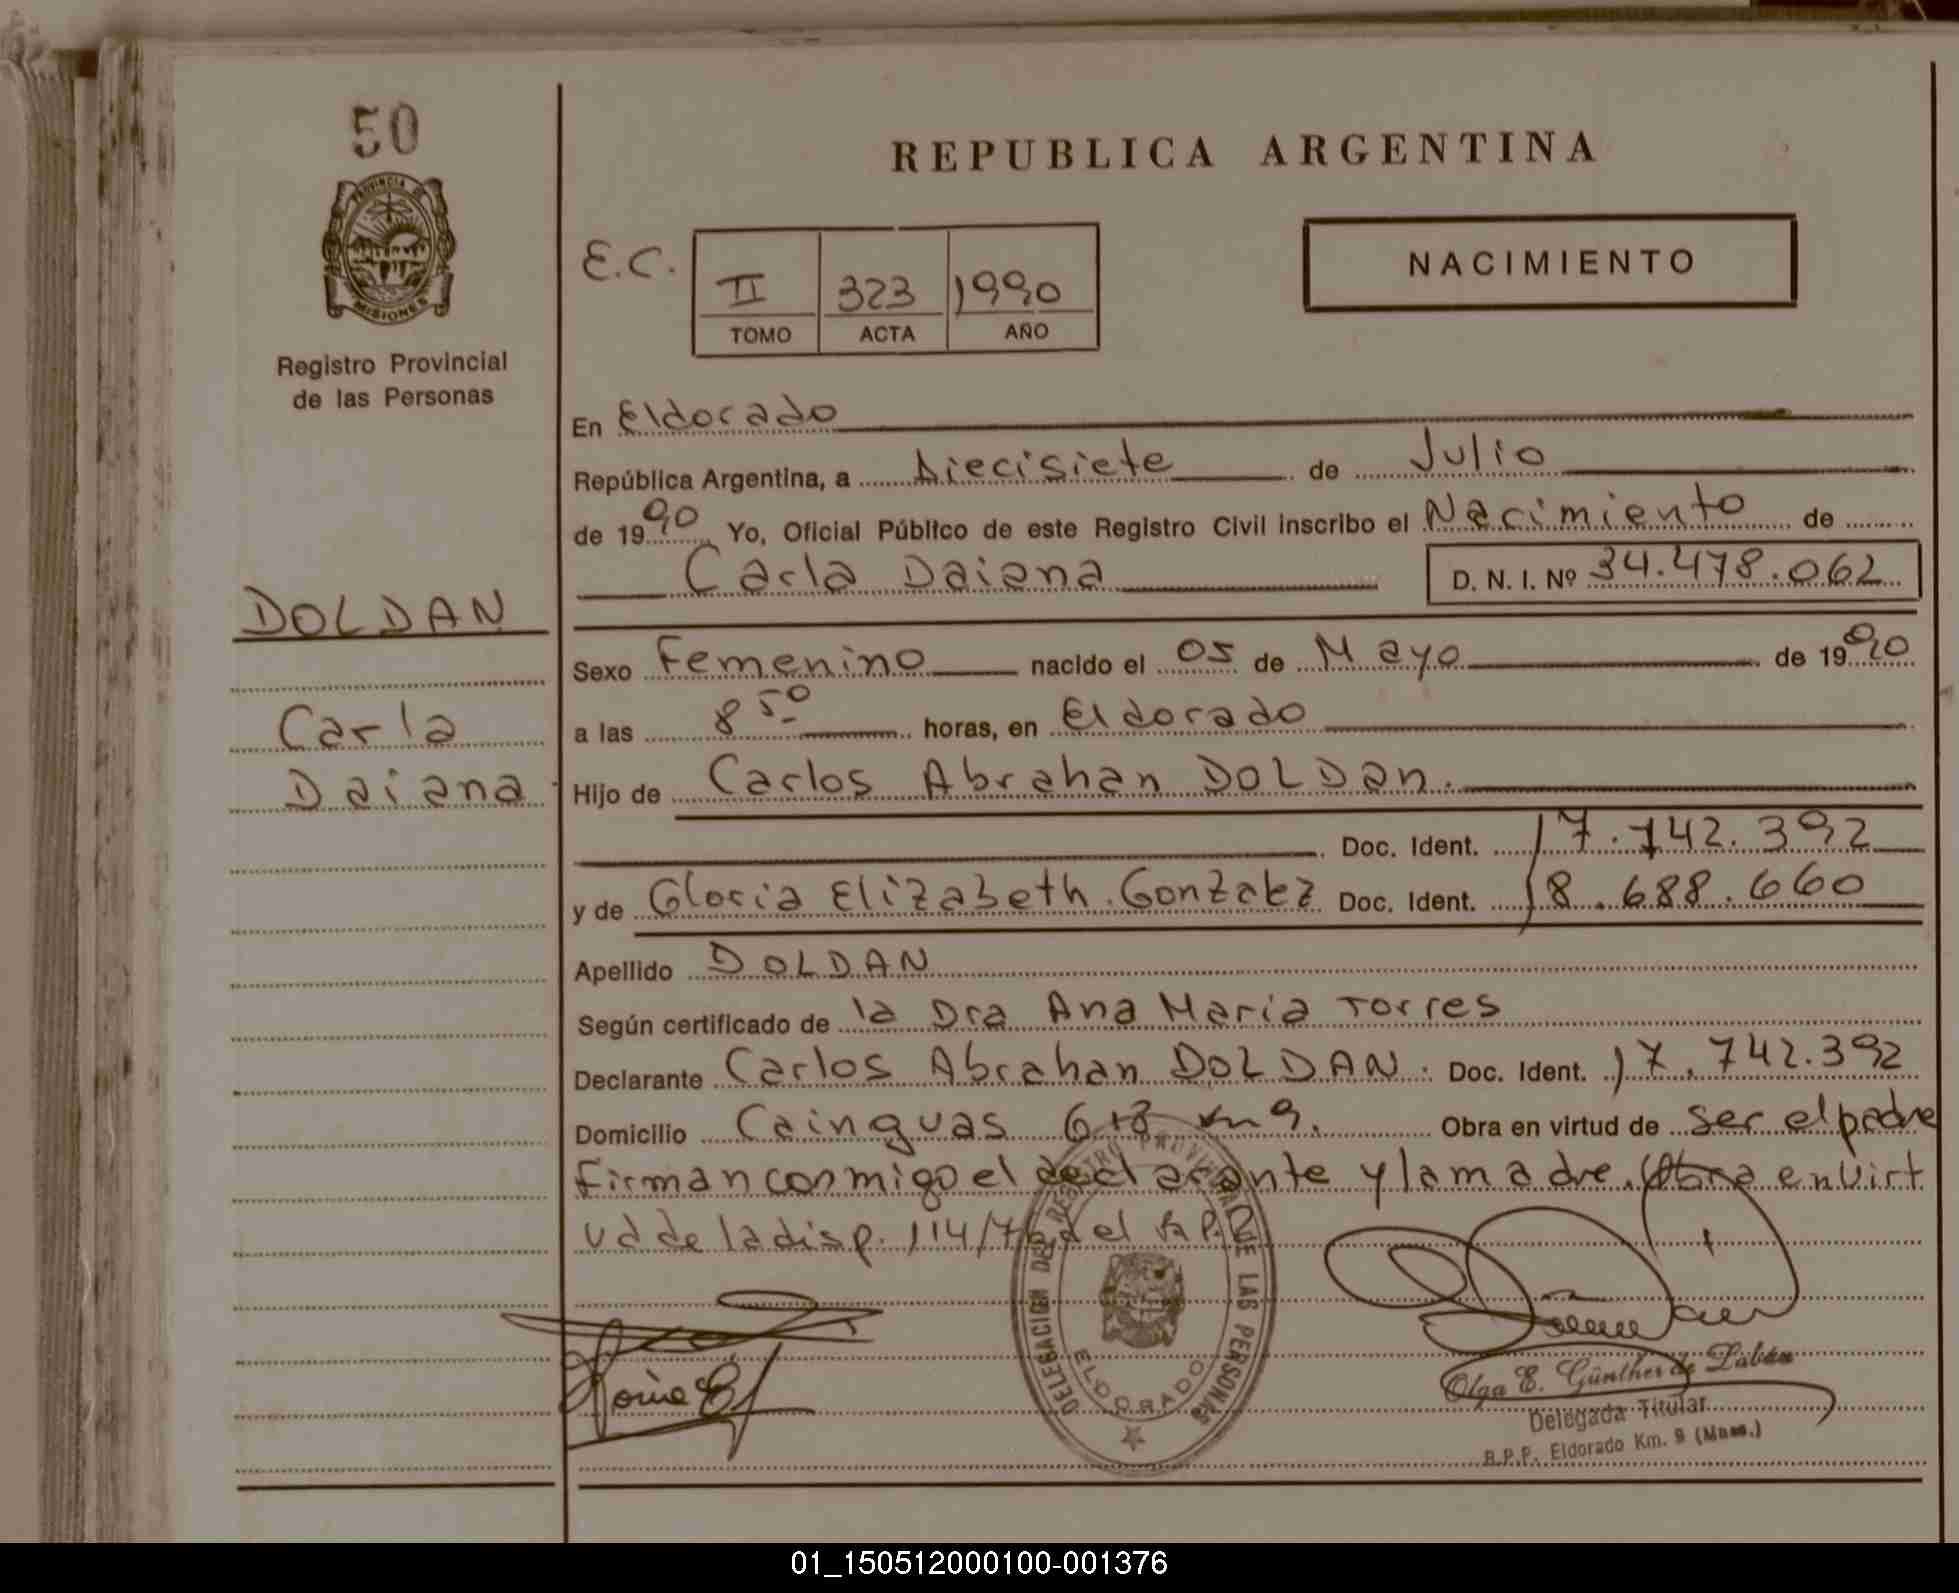 50
PROVINCIA DE
MISIONES
Registro Provincial
de las Personas
DOLDAN
Carla
Daiana
REPUBLICA ARGENTINA
E.C.
II 323 1990
TOMO ACTA AÑO
NACIMIENTO
En Eldorado
República Argentina, a Diecisiete de Julio
de 1990 Yo, Oficial Público de este Registro Civil inscribo el Nacimiento de
Carla Daiana D. N. I. Nº 34.478.062
Sexo Femenino nacido el 05 de Mayo de 1990
a las 8 50 horas, en Eldorado
Hijo de Carlos Abrahan DOLDan.
Doc. Ident. 17.742.392
y de Gloria Elizabeth Gonzalez Doc. Ident. 18.688.660
Apellido DOLDAN
Según certificado de la Dra Ana Maria Torres
Declarante Carlos Abrahan DOLDAN. Doc. Ident. 17.742.392
Domicilio Cainguas 618 km 9. Obra en virtud de ser el padre
Firman conmigo el declarante y la madre. Obra en Virt
ud de la disp. 114/76 del R.P.P.
DELEGACION DEL REGISTRO PROVINCIAL DE LAS PERSONAS
ELDORADO
Olga E. Günther de Labán
Delegada Titular
R.P.P. Eldorado Km. 9 (Mnes.)
01_150512000100-001376